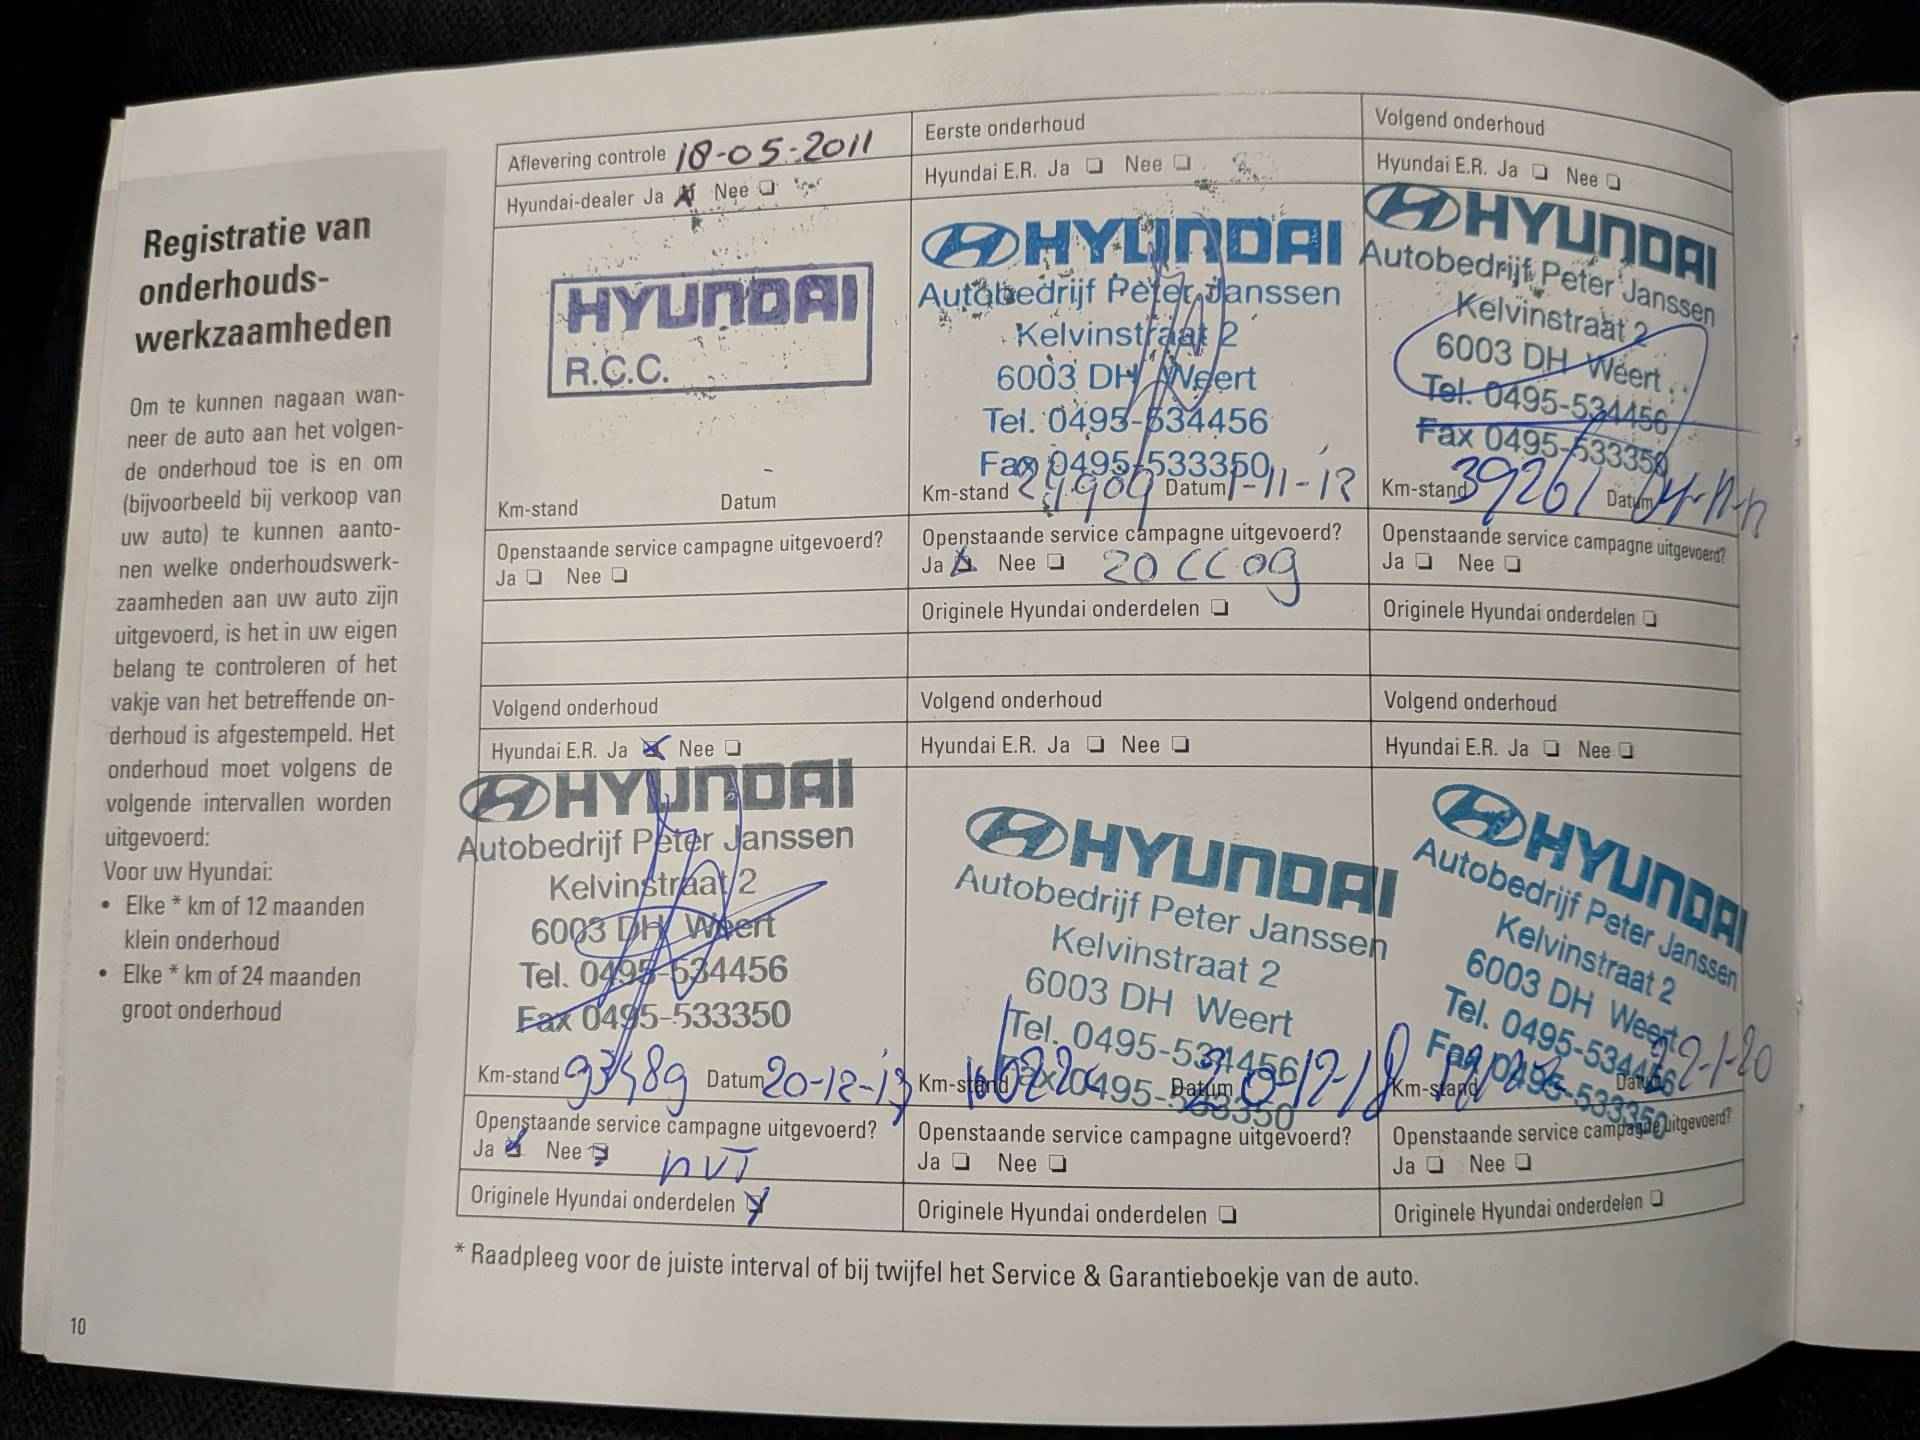 Registratie van
onderhouds-
werkzaamheden
Om te kunnen nagaan wan-
neer de auto aan het volgen-
de onderhoud toe is en om
(bijvoorbeeld bij verkoop van
uw auto) te kunnen aanto-
nen welke onderhoudswerk-
zaamheden aan uw auto zijn
uitgevoerd, is het in uw eigen
belang te controleren of het
vakje van het betreffende on-
derhoud is afgestempeld. Het
onderhoud moet volgens de
volgende intervallen worden
uitgevoerd:
Voor uw Hyundai:
• Elke * km of 12 maanden
klein onderhoud
• Elke * km of 24 maanden
groot onderhoud
10
Aflevering controle 18-05-2011
Hyundai-dealer Ja Nee
HYUNDAI
R.C.C.
Km-stand Datum
Openstaande service campagne uitgevoerd?
Ja Nee
Eerste onderhoud
Hyundai E.R. Ja Nee
HYUNDAI
Autobedrijf Peter Janssen
Kelvinstraat 2
6003 DH Weert
Tel. 0495-534456
Fax 0495-533350
Km-stand Datum
Openstaande service campagne uitgevoerd?
Ja Nee 20CC09
Originele Hyundai onderdelen
Volgend onderhoud
Hyundai E.R. Ja Nee
HYUNDAI
Autobedrijf Peter Janssen
Kelvinstraat 2
6003 DH Weert
Tel. 0495-534456
Fax 0495-533350
Km-stand 39261 Datum
Openstaande service campagne uitgevoerd?
Ja Nee
Originele Hyundai onderdelen
Volgend onderhoud
Hyundai E.R. Ja Nee
HYUNDAI
Autobedrijf Peter Janssen
Kelvinstraat 2
6003 DH Weert
Tel. 0495-534456
Fax 0495-533350
Km-stand 93489 Datum
Openstaande service campagne uitgevoerd?
Ja Nee NVT
Originele Hyundai onderdelen
Volgend onderhoud
Hyundai E.R. Ja Nee
HYUNDAI
Autobedrijf Peter Janssen
Kelvinstraat 2
6003 DH Weert
Tel. 0495-534456
Fax 0495-533350
Km-stand Datum 20-12-18
Openstaande service campagne uitgevoerd?
Ja Nee
Originele Hyundai onderdelen
Volgend onderhoud
Hyundai E.R. Ja Nee
HYUNDAI
Autobedrijf Peter Janssen
Kelvinstraat 2
6003 DH Weert
Tel. 0495-534456
Fax 0495-533350
Km-stand Datum 22-1-20
Openstaande service campagne uitgevoerd?
Ja Nee
Originele Hyundai onderdelen
* Raadpleeg voor de juiste interval of bij twijfel het Service & Garantieboekje van de auto.